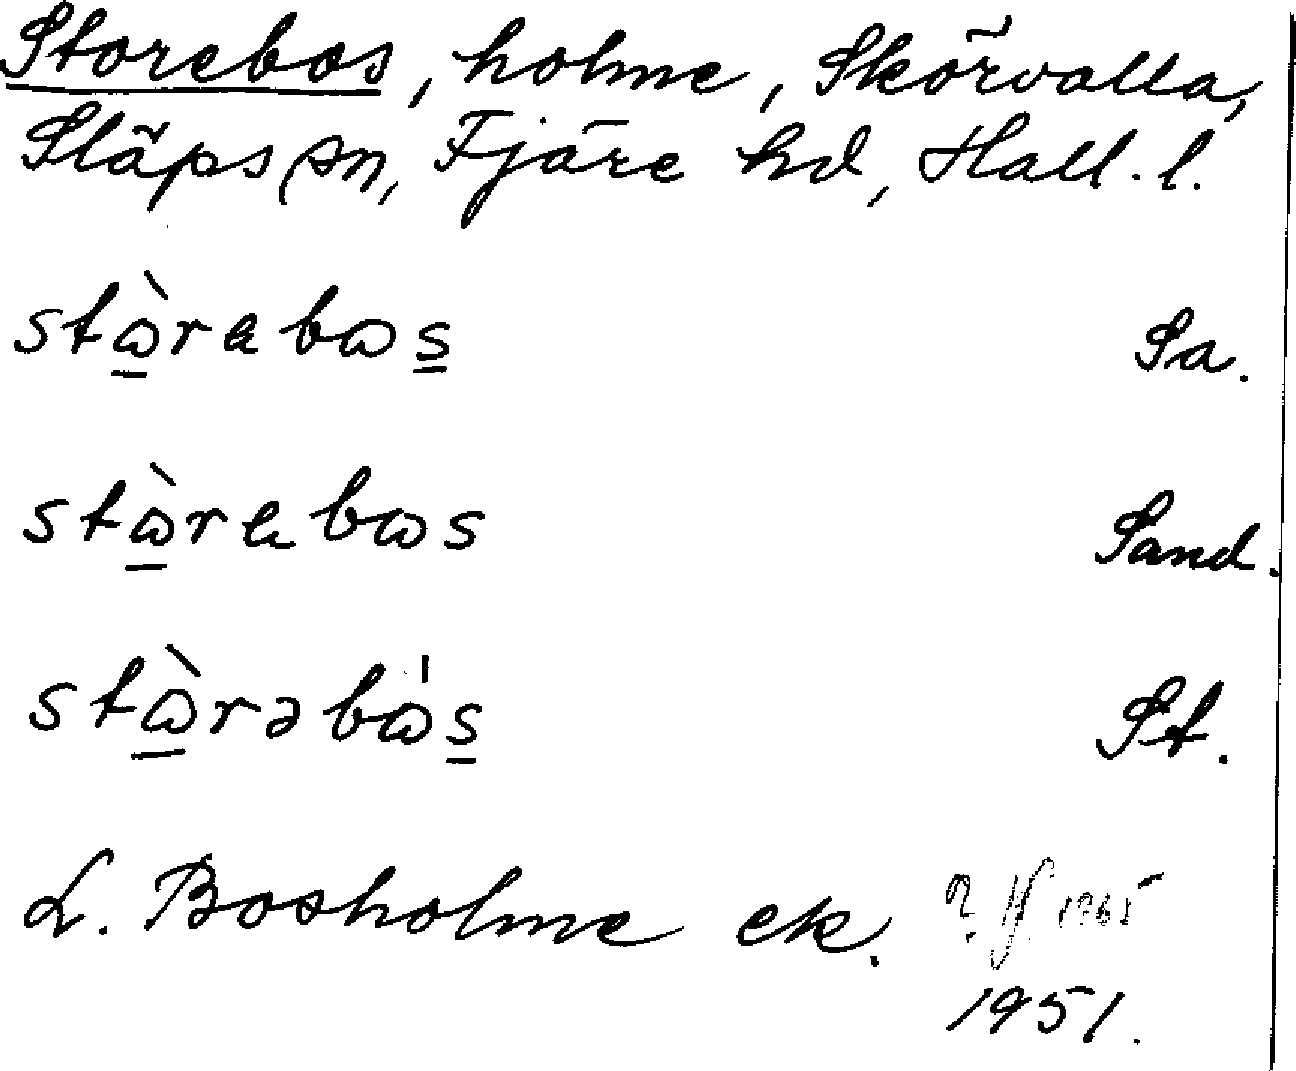 Storebos, holme, Skörvalla,
Släps sn, Fjäre hd, Hall. l.
stɷ̀rebɷs Sa.
stɷ̀rebɷs Sand.
stɷ̀rəbɷ́s St.
L. Bosholme ek. 1965
1951.